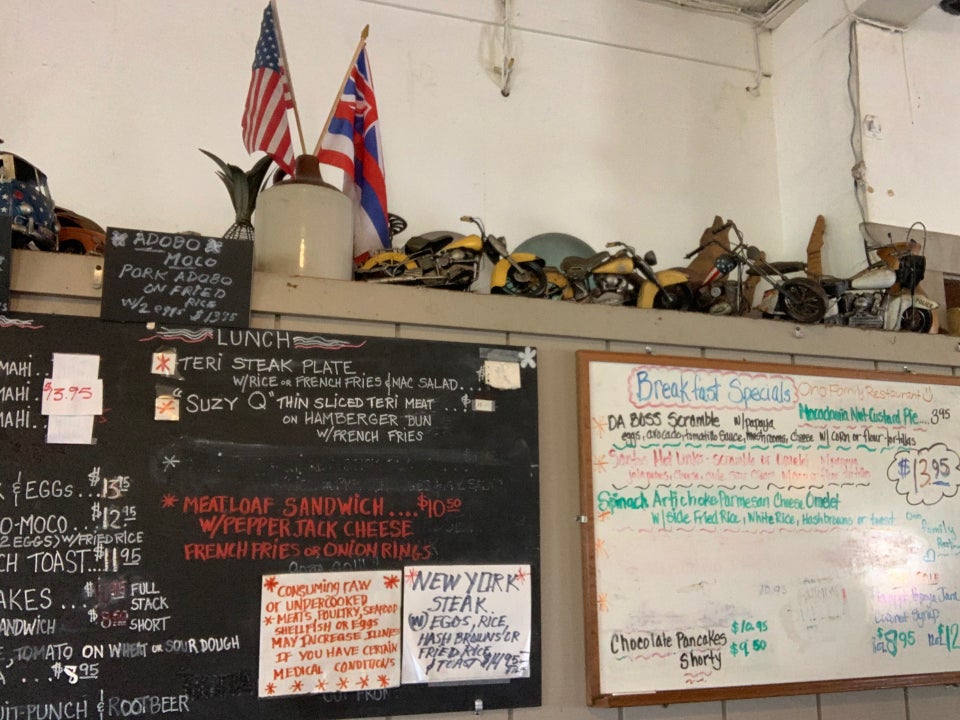 ADOBO
MOCO
PORK ADOBO
ON FRIED
RICE
W/2 eggs $13.95
MAHI..
MAHI.. $13.95
MAHI.
& EGGS...$13.95
O-MOCO....$12.95
2 EGGS) W/FRIED RICE
CH TOAST..$11.95
AKES...
FULL
STACK
SANDWICH
SHORT
, TOMATO ON WHEAT OR SOUR DOUGH
$8.95
UIT-PUNCH & ROOTBEER
LUNCH
TERI STEAK PLATE
W/RICE OR FRENCH FRIES & MAC SALAD...
"SUZY "Q" THIN SLICED TERI MEAT
ON HAMBERGER BUN
W/FRENCH FRIES
MEATLOAF SANDWICH ....$10.50
W/PEPPER JACK CHEESE
FRENCH FRIES OR ONION RINGS
CONSUMING RAW
OR UNDERCOOKED
MEATS, POULTRY, SEAFOOD
SHELLFISH OR EGGS
MAY INCREASE ILLNESS
IF YOU HAVE CERTAIN
MEDICAL CONDITIONS
NEW YORK
STEAK
W/ EGGS, RICE,
HASH BROWNS OR
FRIED RICE
& TOAST $14.95
Breakfast Specials
Ono Family Restaurant
Macadamia Nut-Custard Pie....3.95
DA BOSS Scramble w/papaya
eggs, avocado, tomatillo sauce, mushrooms, cheese w/ corn or flour-tortillas
Hot Links - scramble or Omelet
$13.95
Spinach Artichoke Parmesan Cheese Omelet
w/side Fried Rice, White Rice, Hashbrowns or toast
Ono
Family
Coconut Syrup
$8.95
$12
Chocolate Pancakes $10.95
Shorty $9.50
POLICE